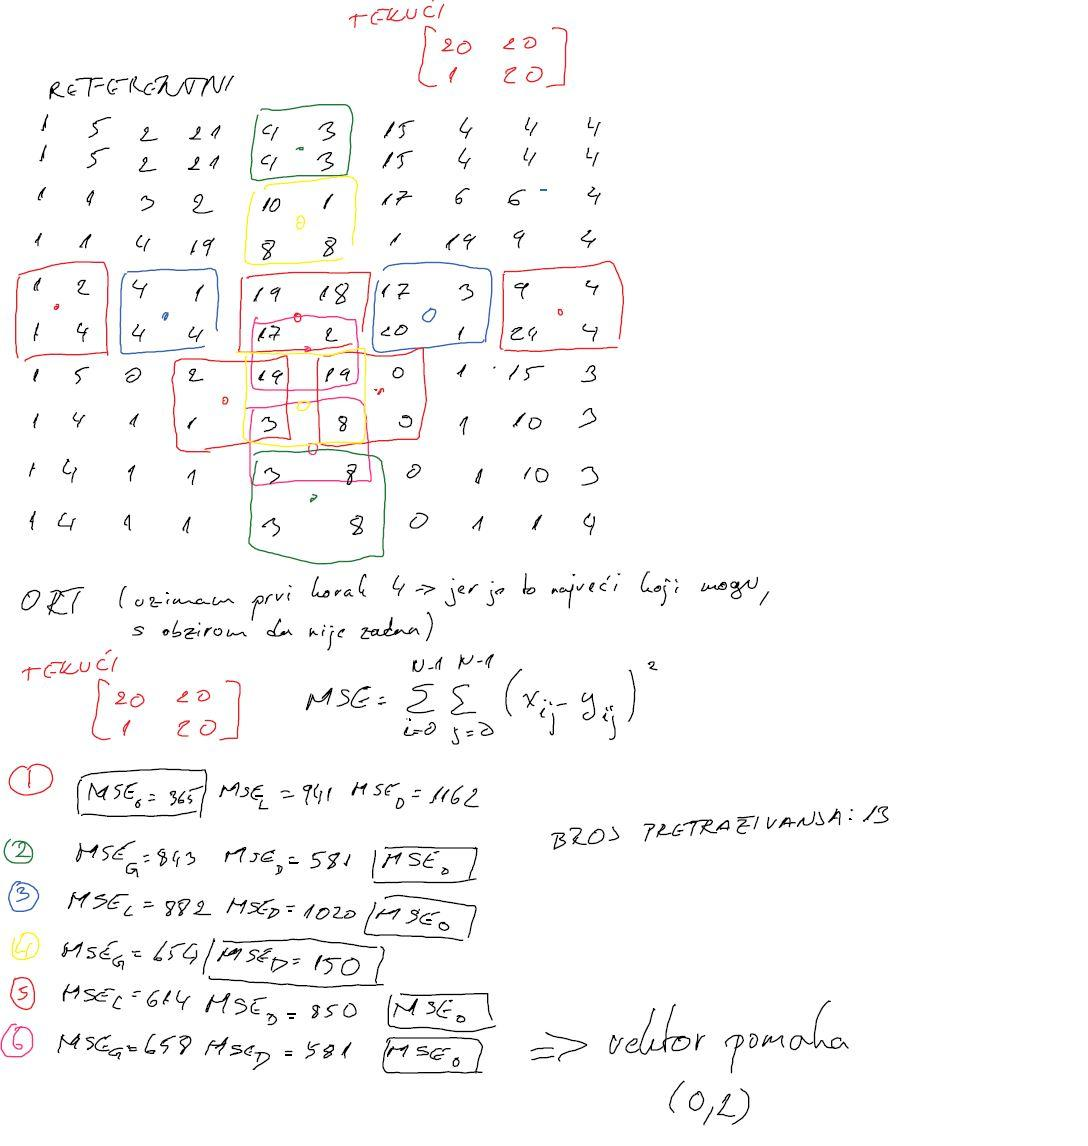 TEKUĆI
20 20
1 20
REFERENTNI
1 5 2 21 4 3 15 4 4 4
1 5 2 21 4 3 15 4 4 4
1 1 3 2 10 1 17 6 6 4
1 1 4 19 8 8 1 19 9 4
1 2 4 1 19 18 17 3 9 4
1 4 4 4 17 2 20 1 24 4
1 5 0 2 19 19 0 1 15 3
1 4 1 1 3 8 0 1 10 3
1 4 1 1 3 8 0 1 10 3
1 4 1 1 3 8 0 1 1 4
ORT (uzimam prvi korak 4 => jer je to najveći koji mogu,
s obzirom da nije zadan)
TEKUĆI
20 20
1 20
MSE = N-1 Σ i=0 N-1 Σ j=0 (x_ij - y_ij)²
1 MSE_0 = 365 MSE_L = 941 MSE_D = 1162
BROJ PRETRAŽIVANJA: 13
2 MSE_G = 843 MSE_D = 581 MSE_0
3 MSE_L = 882 MSE_D = 1020 MSE_0
4 MSE_G = 654 MSE_D = 150
5 MSE_L = 614 MSE_D = 850 MSE_0
6 MSE_G = 658 MSE_D = 581 MSE_0
=> vektor pomaka
(0,2)